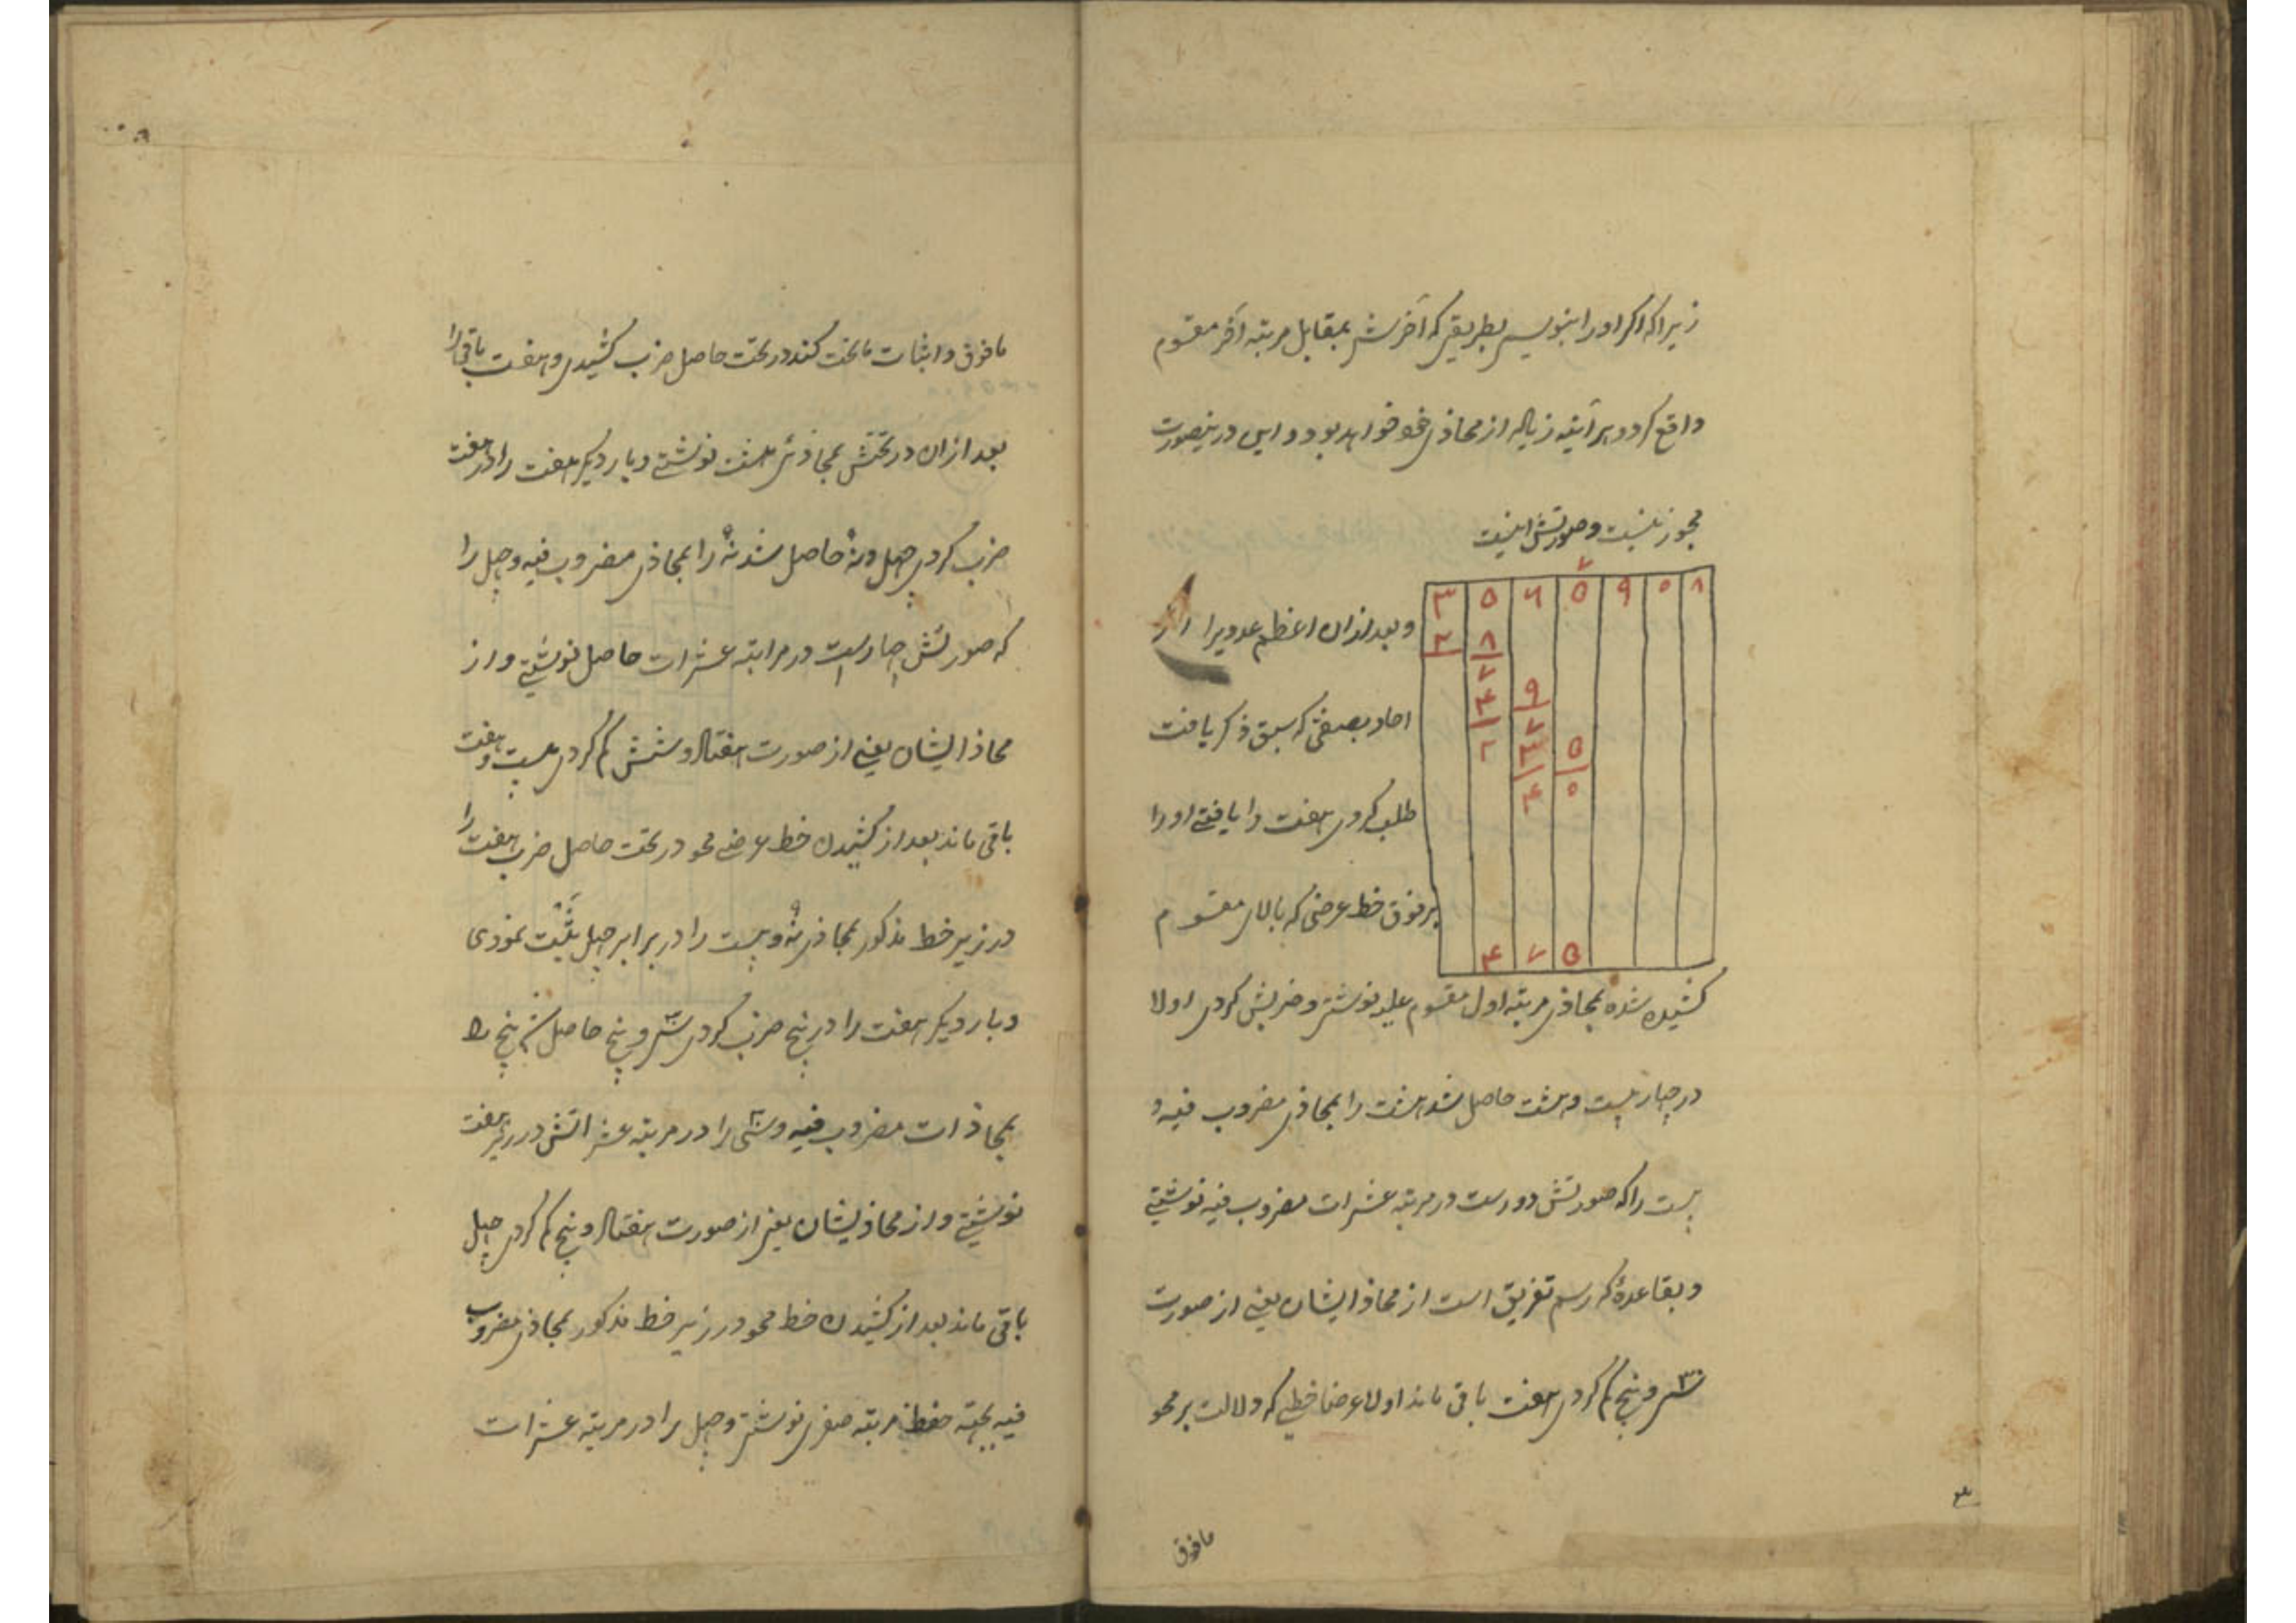 زیرا که اکر او را بنویسی بطریقی که آخرش بمقابل مرتبه آخر مقسوم
واقع کردد هر آینه زیاده از محاذی خود خواهد بود و این درینصورت
مجوز نیست و صورتش اینست
۷
۳ ۵ ۶ ۵ ۹ ۰ ۸
۲ ۸
۷
۴ ۹
۲ ۷
۳ ۵
۴ ۰
۴ ۷ ۵
و بعد ازان اعظم عددیرا از
احاد بصفتی که سبق ذکر یافت
طلب کردی هفت را یافتی او را
بر فوق خط عرضی که بالای مقسوم
کشیده شده بمحاذی مرتبه اول مقسوم علیه نوشتی و ضربش کردی اولا
در چهار بیست و هشت حاصل شد هشت را بمحاذی مضروب فیه و
بیست را که صورتش دو است در مرتبه عشرات مضروب فیه نوشتی
و بقاعدهٔ که رسم تفریق است از محاذ ایشان یعنی از صورت
سی و پنج کم کردی هفت باقی ماند اولا عرضا خطی که دلالت بر محو
مافوق
مافوق و اثبات ماتحت کند در تحت حاصل ضرب کشیدی و هفت باقی را
بعد ازان در تحتش بمحاذی هشت نوشتی و بار دیکر هفت را در هفت
ضرب کردی چهل و نه حاصل شد نه را بمحاذی مضروب فیه و چهل را
که صورتش چهار است در مرتبه عشرات حاصل نوشتی و از
محاذ ایشان یعنی از صورت هفتاد و شش کم کردی بیست و هفت
باقی ماند بعد از کشیدن خط عرضی محو در تحت حاصل ضرب هفت را
در زیر خط مذکور بمحاذی نه و بیست را در برابر چهل ثبت نمودی
و بار دیکر هفت را در پنج ضرب کردی سی و پنج حاصل شد پنج را
بمحاذات مضروب فیه و سی را در مرتبه عشراتش در زیر هفت
نوشتی و از محاذ ایشان یعنی از صورت هفتاد و پنج کم کردی چهل
باقی ماند بعد از کشیدن خط محو در زیر خط مذکور بمحاذی مضروب
فیه بجهته حفظ مرتبه صفری نوشتی و چهل را در مرتبه عشرات